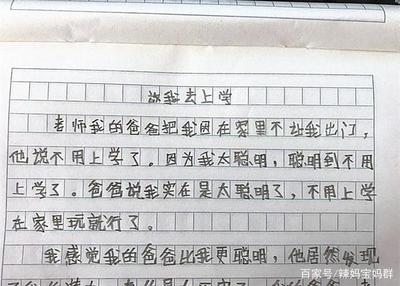 放我去上学
老师我的爸爸把我困在家里不让我出门，
他说不用上学了。因为我太聪明，聪明到不用
上学了。爸爸说我实在是太聪明了，不用上学
在家里玩就行了。
我感觉我的爸爸比我更聪明，他居然发现
百家号/辣妈宝妈群